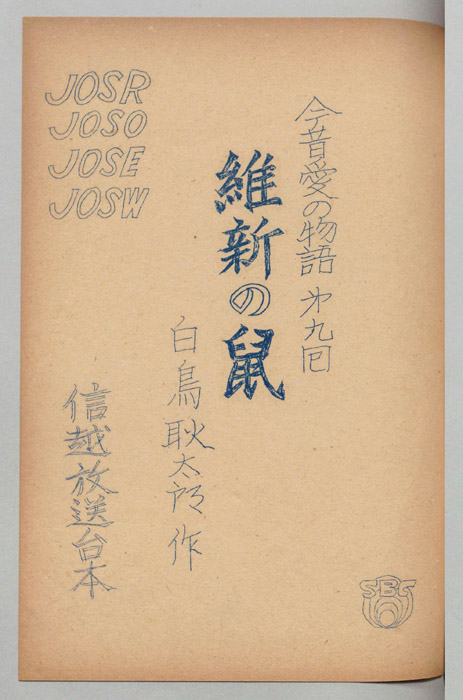 JOSR
JOSO
JOSE
JOSW
今昔愛の物語 第九回
維新の鼠
白鳥耿太郎 作
信越放送台本
SBC